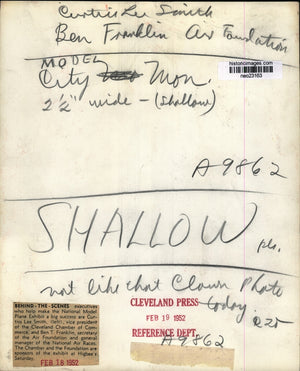 Curtis Lee Smith
Ben Franklin Air Foundation
MODEL
City Mon.
2 1/2" wide - (shallow)
historicimages.com
neo23103
A9862
SHALLOW pls.
not like that Clown Photo
today.
BEHIND-THE-SCENES executives
who help make the National Model
Plane Exhibit a big success are Cur-
tiss Lee Smith, (left), vice president
of the Cleveland Chamber of Com-
merce, and Ben T. Franklin, secretary
of the Air Foundation and general
manager of the National Air Races.
The Chamber and the Foundation are
sponsors of the exhibit at Higbee's
Saturday.
FEB 18 1952
CLEVELAND PRESS
FEB 19 1952
REFERENCE DEPT.
A9862